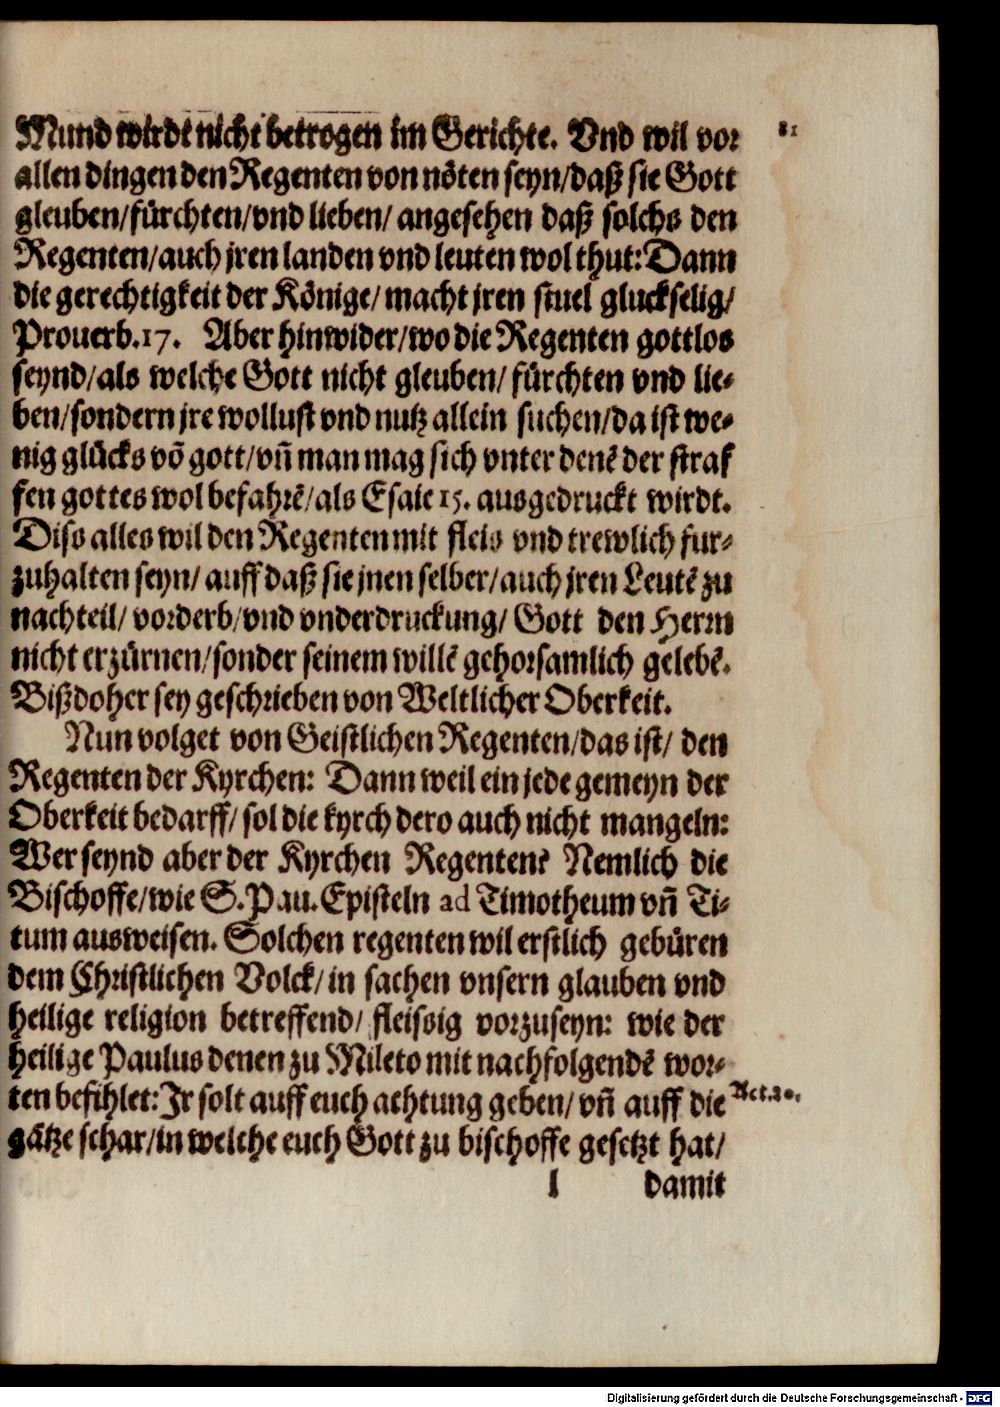 Mund wirdt nicht betrogen im Gerichte. Vnd wil vor
81
allen dingen den Regenten von nöten seyn/daß sie Gott
gleuben/fürchten/vnd lieben/ angesehen daß solchs den
Regenten/auch jren landen vnd leuten wol thut: Dann
die gerechtigkeit der Könige/ macht jren stuel gluckselig/
Prouerb.17. Aber hinwider/wo die Regenten gottlos
seynd/als welche Gott nicht gleuben/ fürchten vnd lie-
ben/sondern jre wollust vnd nutz allein suchen/da ist we-
nig glücks võ gott/vñ man mag sich vnter denẽ der straf
fen gottes wol befahrẽ/als Esaie 15. ausgedruckt wirdt.
Diss alles wil den Regenten mit fleis vnd trewlich fur-
zuhalten seyn/ auff daß sie jnen selber/auch jren Leutẽ zu
nachteil/ vorderb/vnd vnderdruckung/ Gott den Herrn
nicht erzürnen/sonder seinem willẽ gehorsamlich gelebẽ.
Bißdoher sey geschrieben von Weltlicher Oberkeit.
Nun volget von Geistlichen Regenten/das ist/ den
Regenten der Kyrchen: Dann weil ein jede gemeyn der
Oberkeit bedarff/ sol die kyrch dero auch nicht mangeln:
Wer seynd aber der Kyrchen Regenten? Nemlich die
Bischoffe/wie S.Pau.Episteln ad Timotheum vñ Ti-
tum ausweisen. Solchen regenten wil erstlich gebüren
dem Christlichen Volck/in sachen vnsern glauben vnd
heilige religion betreffend/ fleissig vorzuseyn: wie der
heilige Paulus denen zu Mileto mit nachfolgendẽ wor-
ten befihlet: Jr solt auff euch achtung geben/ vñ auff die
Act.20.
gätze schar/in welche euch Gott zu bischoffe gesetzt hat/
l damit
Digitalisierung gefördert durch die Deutsche Forschungsgemeinschaft - DFG